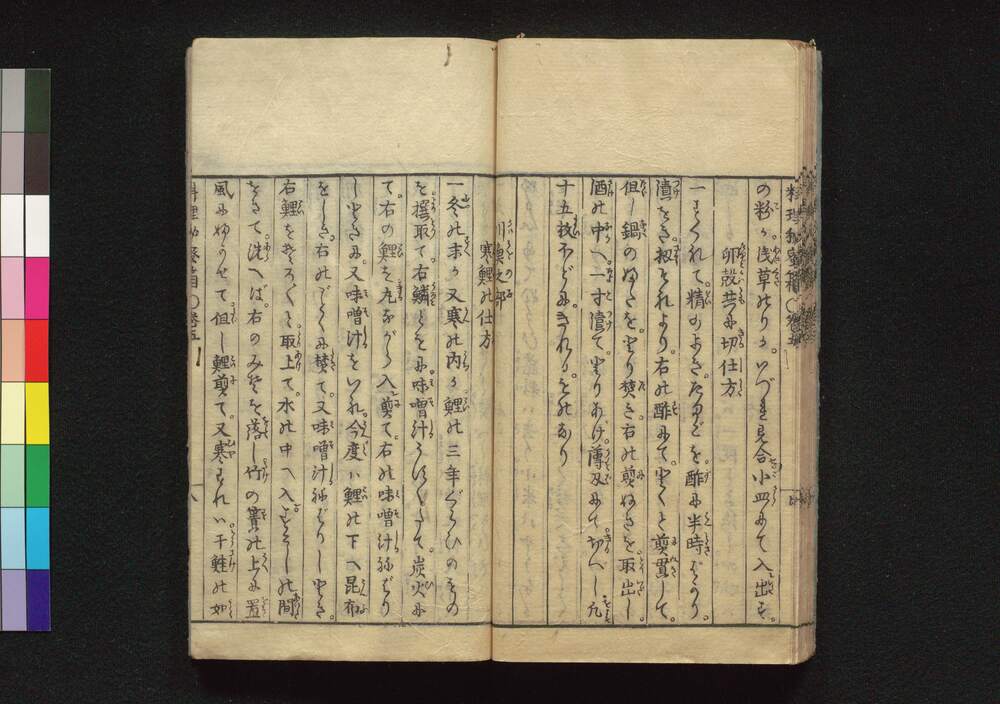 の粉か浅草のりかいづれ見合小皿にて入出す
卵殻共に切仕方
一すぐれて精のよきたまごを酢に半時ばかり
漬をき扨それより右の酢にてとくと煎貫して
但し鍋のふたをとり焚き右の煎ぬきを取出し
酒の中へ一寸漬てとりあげ薄刃にて切べし九
十五枚ほどにきれるものなり
川魚之部
寒鯉の仕方
一冬の末か又寒の内か鯉の三年ぐらひのもの
を撰取て右鱗ともに味噌汁うすくたて炭火に
て右の鯉を丸ながら入煎て右の味噌汁ねばり
しときに又味噌汁をいれ今度は鯉の下へ昆布
をしき右のごとくに焚て又味噌汁ねばりしとき
右鯉をそろ〳〵と取上て水の中へ入すこしの間
をきて洗へば右のみそを落し竹の簀の上に置
風にふかせて但し鯉煎て又寒ざれハ干鮭の如